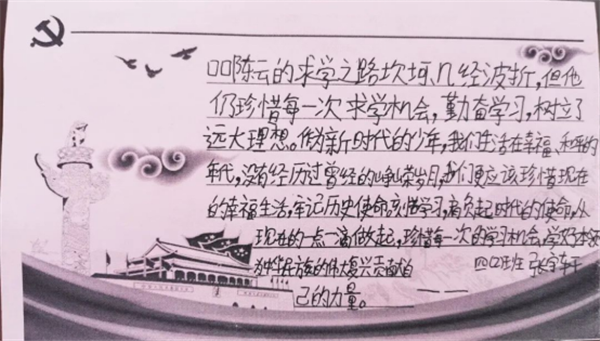 口口陈云的求学之路坎坷,几经波折,但他
仍珍惜每一次求学机会,勤奋学习,树立了
远大理想。作为新时代的少年,我们生活在幸福、和平的
年代,没有经历过曾经的峥嵘岁月,我们更应该珍惜现在
的幸福生活,牢记历史使命,珍惜学习,肩负起时代的使命,从
现在的一点一滴做起,珍惜每一次的学习机会,学好本领
为中华民族的伟大复兴贡献自
己的力量。
——四(2)班 张宇轩